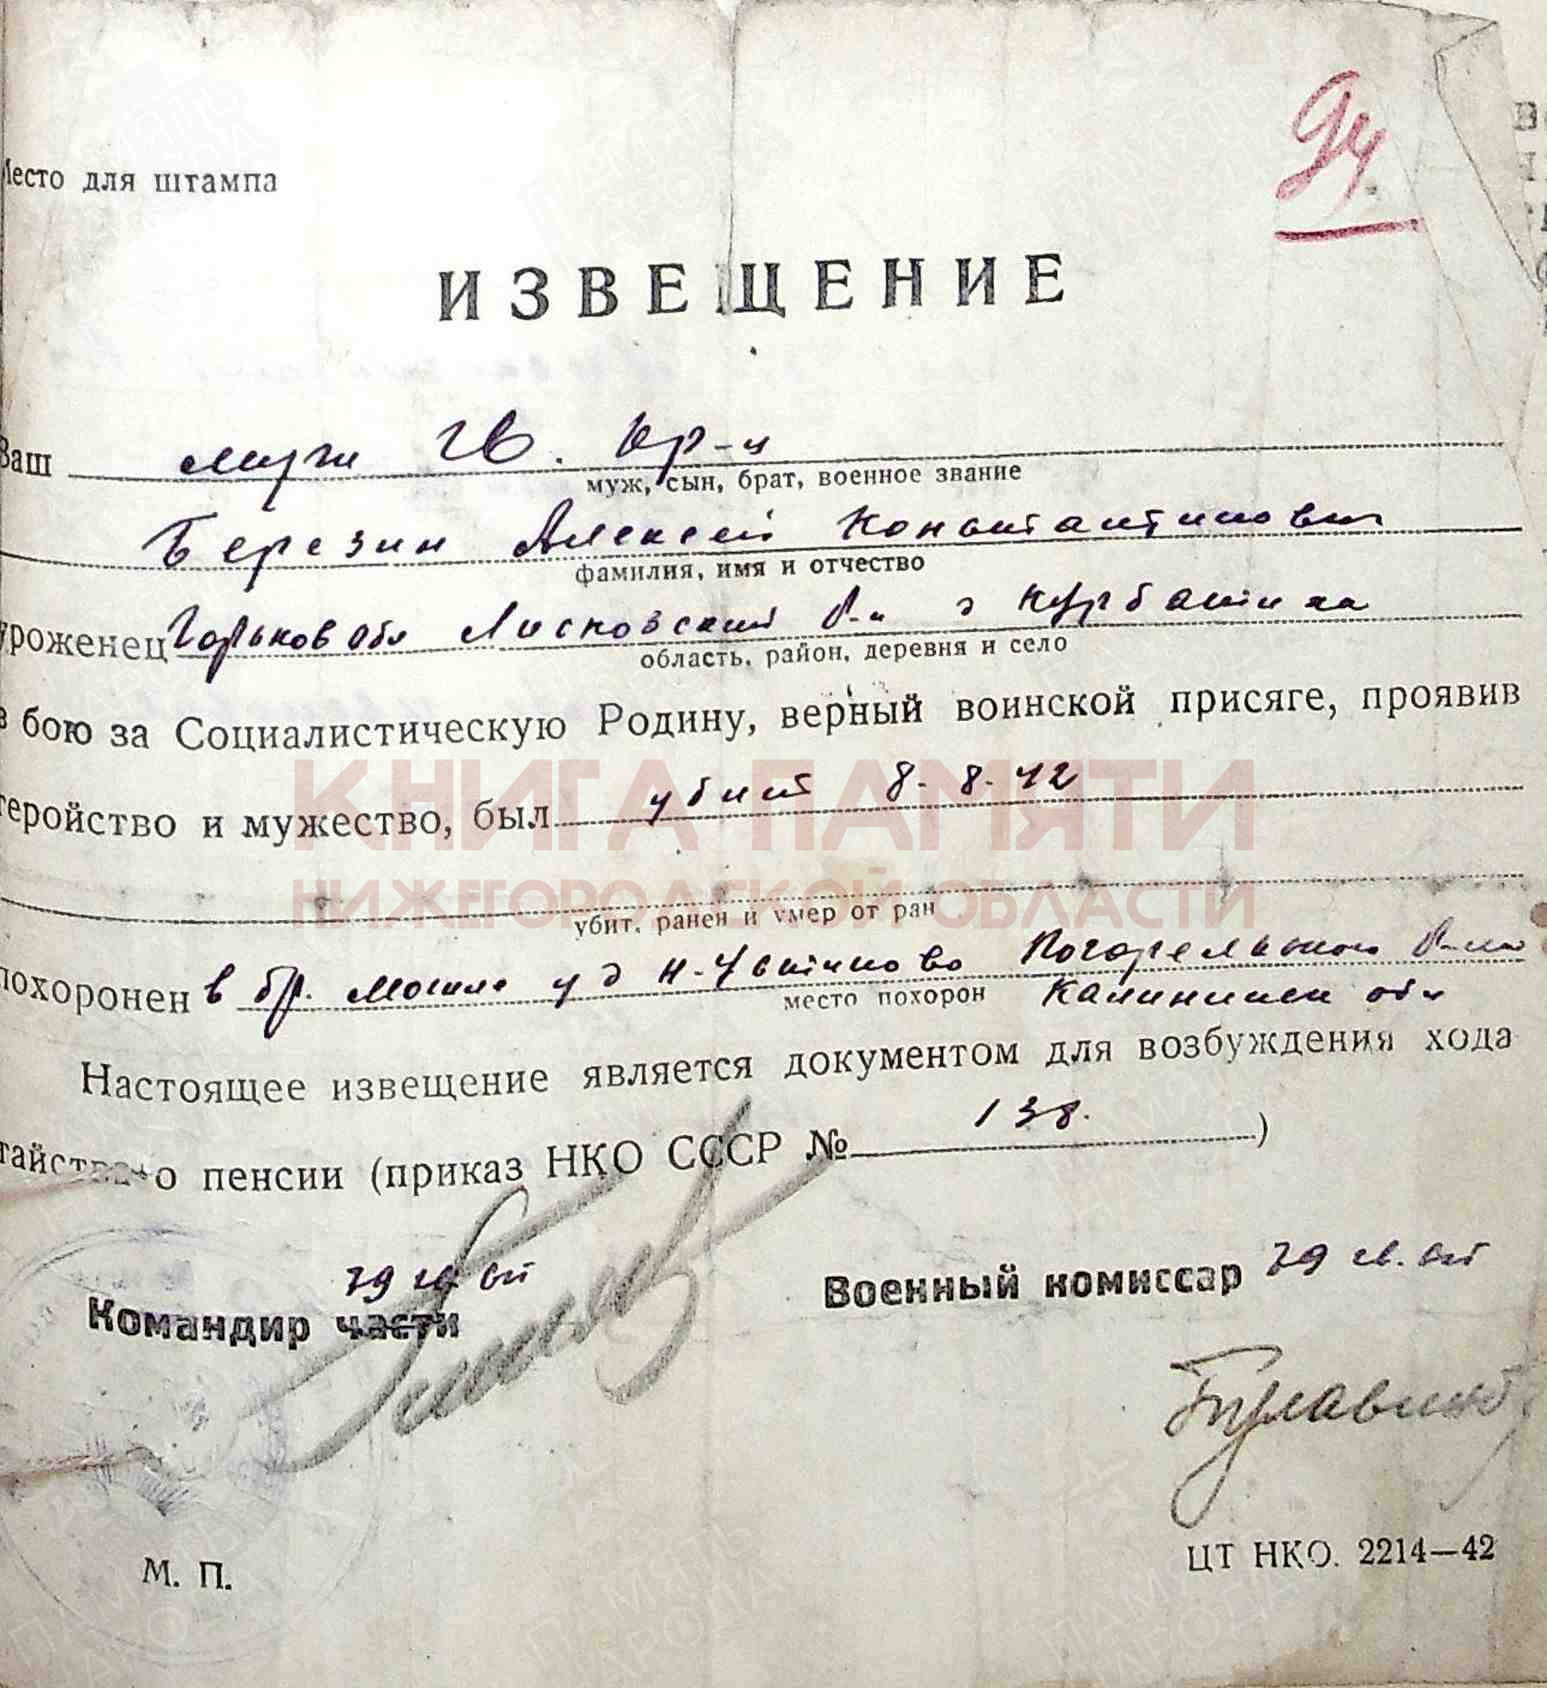 94
Место для штампа
ИЗВЕЩЕНИЕ
Ваш муж гв. кр-ц
муж, сын, брат, военное звание
Березин Алексей Константинович
фамилия, имя и отчество
уроженец Горьков обл Лысковский р-н д Курбатиха
область, район, деревня и село
в бою за Социалистическую Родину, верный воинской присяге, проявив
геройство и мужество, был убит 8.8.42
КНИГА ПАМЯТИ
НИЖЕГОРОДСКОЙ ОБЛАСТИ
убит, ранен и умер от ран
похоронен в бр. могиле у д Н-Устиново Погорельского р-на
место похорон Калининск обл
Настоящее извещение является документом для возбуждения хода
тайства о пенсии (приказ НКО СССР № 138.)
79 гв сп
Командир части
Военный комиссар 79 гв. сп
Булавин
М. П.
ЦТ НКО. 2214—42